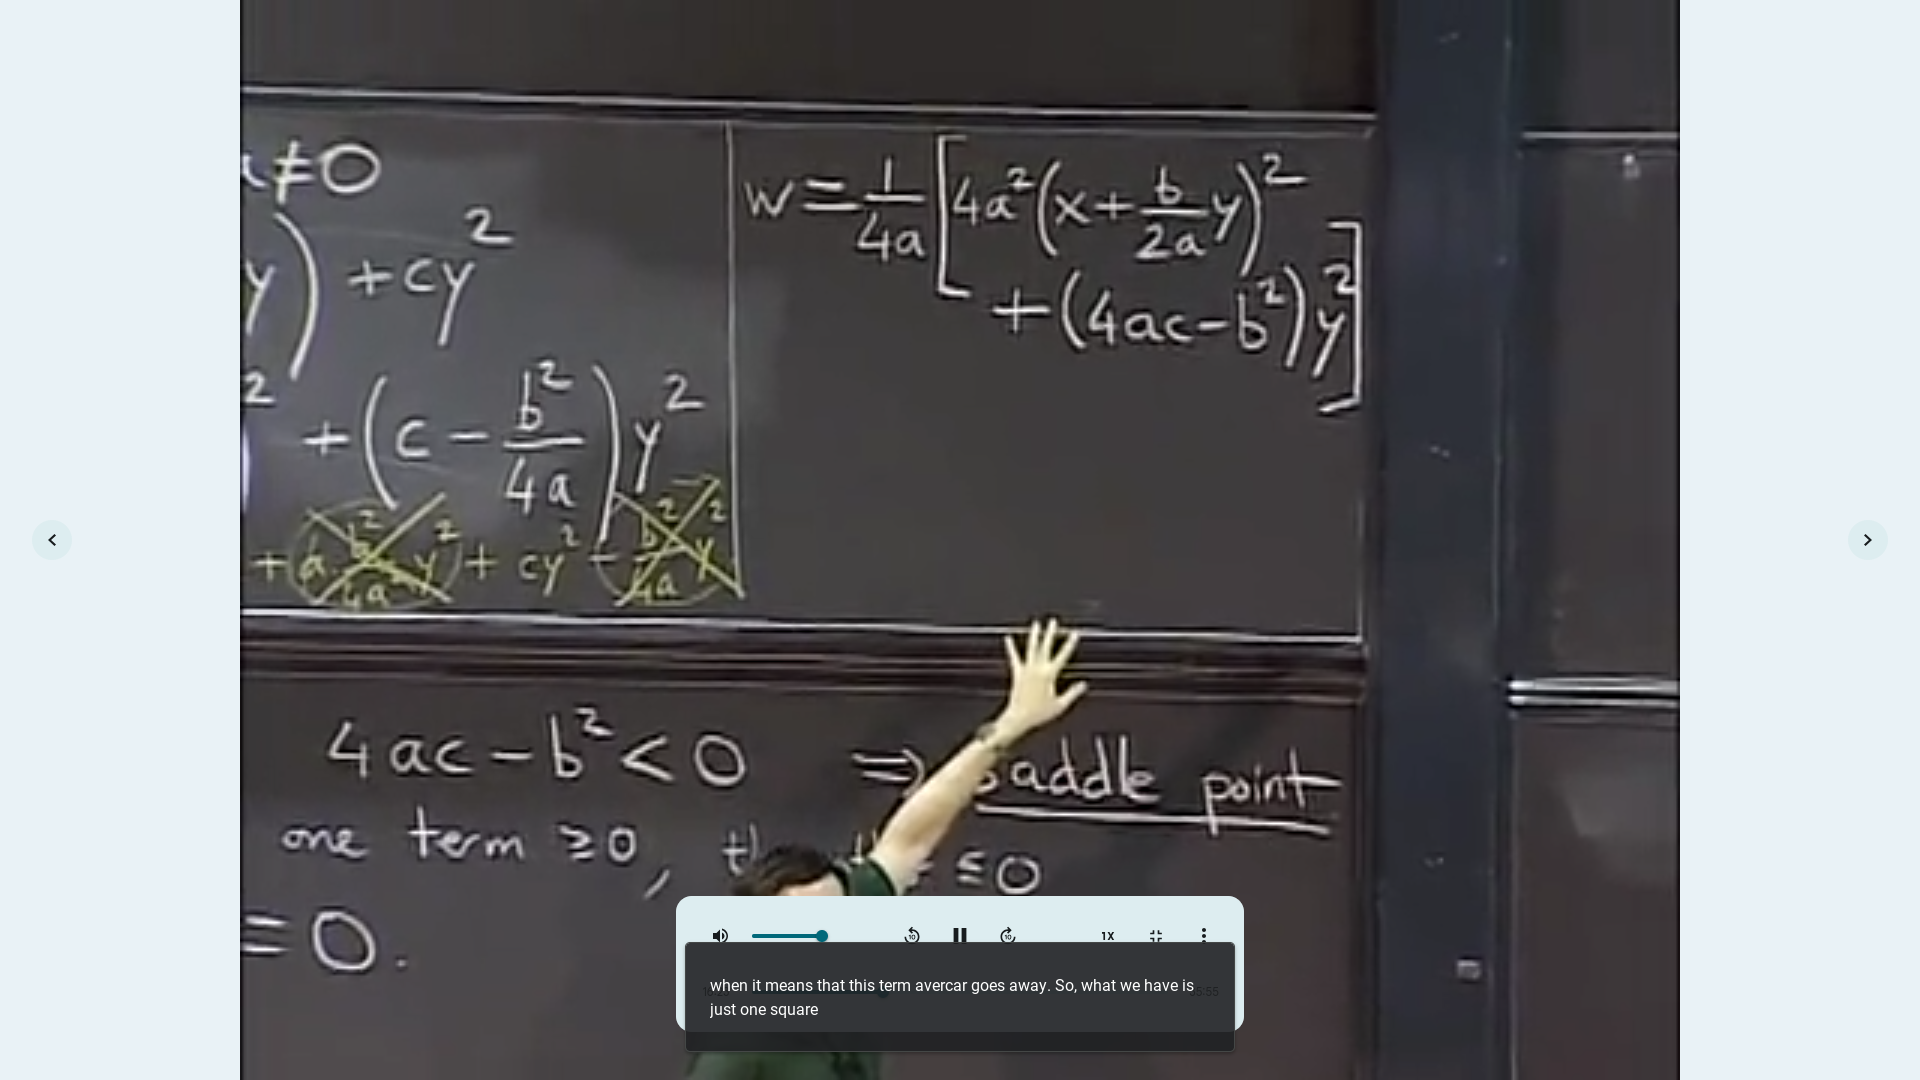 ≠0
y) + cy²
² + (c - b²/4a) y²
+ a b²/4a² y² + cy² - b²/4a y²
w = 1/4a [4a²(x + b/2a y)²
+ (4ac - b²) y²]
4ac - b² < 0 ⇒ saddle point
one term ≥0, ≤0
= 0.
1X
when it means that this term avercar goes away. So, what we have is
just one square